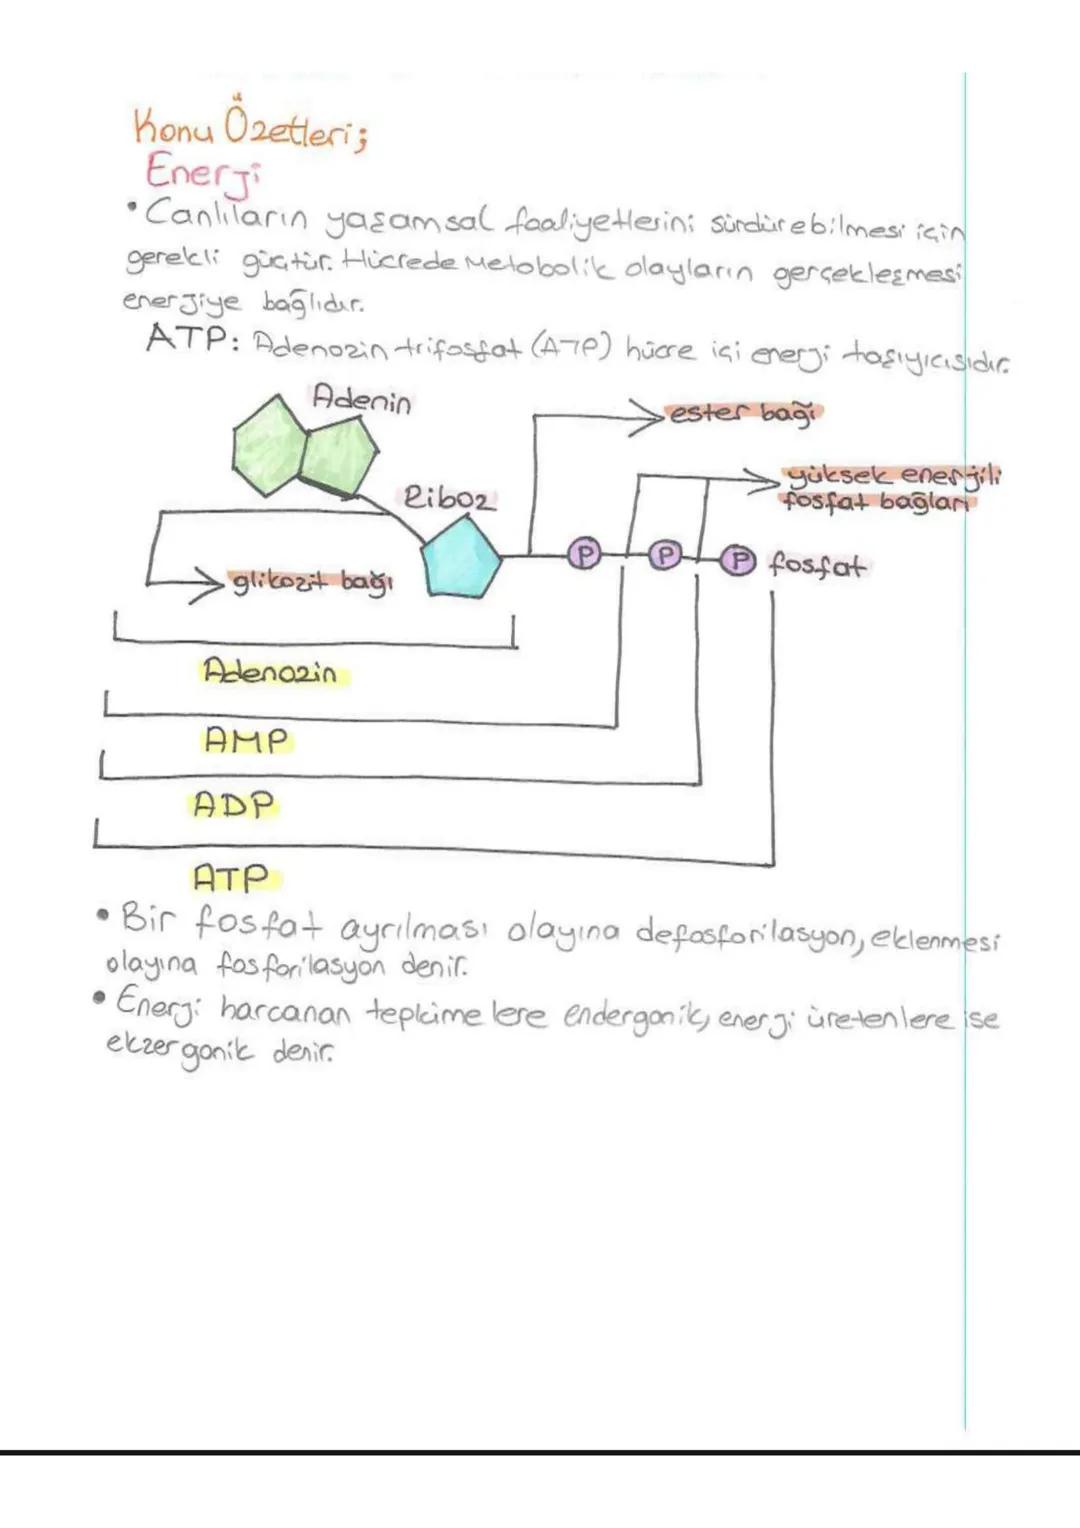 Konu Özetleri;
Enerji
• Canlıların yaşamsal faaliyetlerini sürdürebilmesi için
gerekli güçtür. Hücrede Metobolik olayların gerçekleşmesi
enerjiye bağlıdır.
ATP: Adenozin trifosfat (ATP) hücre içi enerji taşıyıcısıdır.
Adenin
ester bağı
yüksek enerjili
fosfat bağları
Riboz
P
P
P
fosfat
glikozit bağı
Adenozin
AMP
ADP
ATP
• Bir fosfat ayrılması olayına defosforilasyon, eklenmesi
olayına fosforilasyon denir.
• Enerji harcanan tepkimelere endergonik, enerji üretenlere ise
ekzergonik denir.